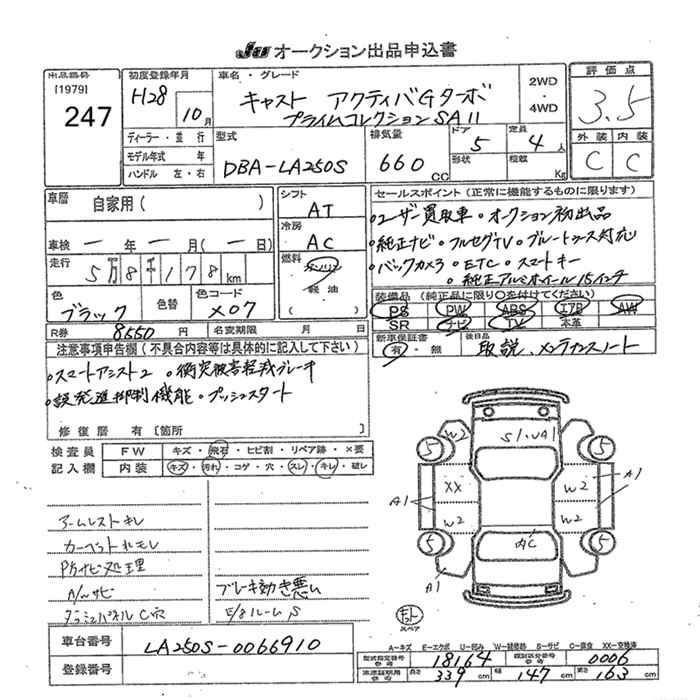 JU オークション出品申込書
出品番号
[1979]
247
初度登録年月
H28
10月
車名・グレード
キャスト アクティバGターボ
プライムコレクション SAⅡ
2WD
・
4WD
評価点
3.5
外装 内装
C C
ディーラー・並行
モデル年式 年
ハンドル 左・右
型式
DBA-LA250S
排気量
660 CC
ドア
5
形状
定員
4人
積載
Kg
車歴
自家用( )
車検 ー 年 ー 月(ー日)
走行
5万8千178km
色
ブラック
色替
色コード
X07
シフト
AT
冷房
AC
燃料
ガソリン
軽油
( )
セールスポイント(正常に機能するものに限ります)
・ユーザー買取車・オークション初出品
・純正ナビ・フルセグTV・ブルートゥース対応
・バックカメラ・ETC・スマートキー
・純正アルミホイール15インチ
装備品(純正品に限り○を付けてください)
PS PW ABS エアB AW
SR ナビ TV 本革
R券 8550円 名変期限 月 日
新車保証書
有・無
後日品
取説、メンテナンスノート
注意事項申告欄(不具合内容等は具体的に記入して下さい)
・スマートアシスト2 ・衝突被害軽減ブレーキ
・誤発進抑制機能 ・プッシュスタート
修復歴 有〔箇所 〕
検査員
記入欄
FW キズ・飛石・ヒビ割・リペア跡・×要
内装 キズ・汚れ・コゲ・穴・スレ・キレ・破レ
アームレストキレ
カーペット
内サビ処理
サビ
C穴
ブレーキ効き悪い
S
車台番号 LA250S-0066910
登録番号
5 W2 5
A1 XX W2 A1
W2 W2
5 5
A1 内C
スペア
A=キズ E=エクボ U=凹み W=補修跡 S=サビ C=腐食 XX=交換済
型式指定番号
参考
18164
類別区分番号
参考
0006
車検証明用
参考
長さ 339cm 幅 147cm 高さ 163cm